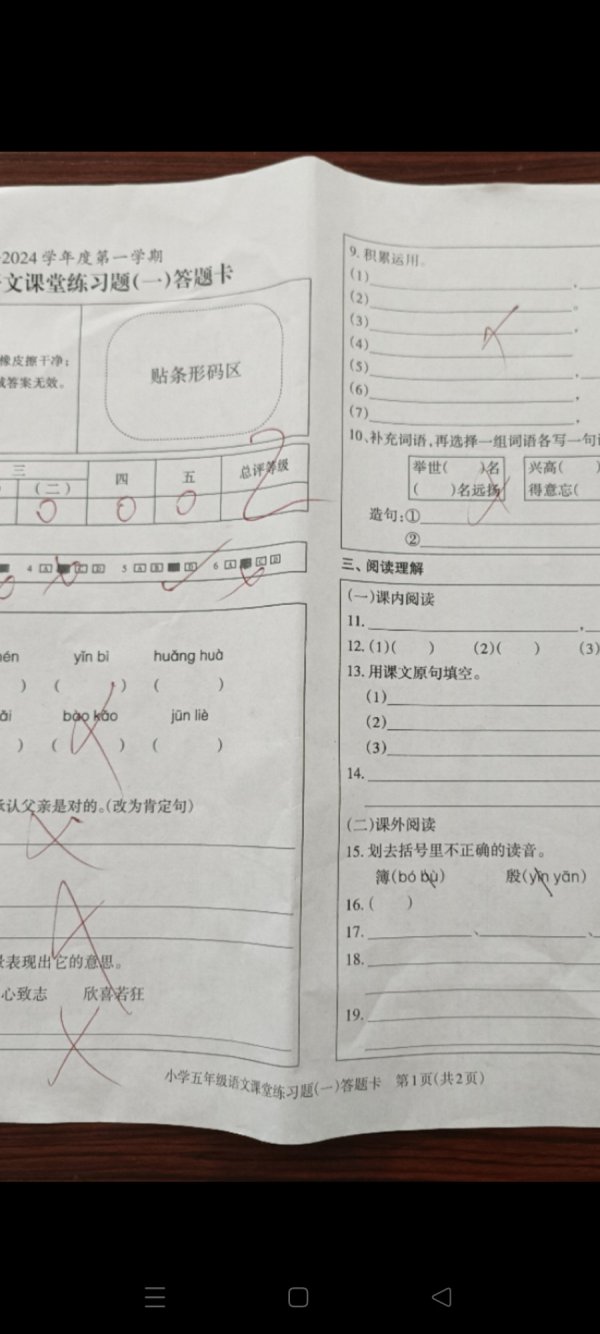 2024学年度第一学期
文课堂练习题(一)答题卡
橡皮擦干净;
答案无效。
贴条形码区
三 四 五 总评等级
(二)
0 0 0 2
4 A C D 5 A B D 6 A C D
yīn bì huǎng huà
( ) ( )
bào kǎo jūn liè
) ( ) ( )
承认父亲是对的。(改为肯定句)
表现出它的意思。
心致志 欣喜若狂
9. 积累运用。
(1)
(2) 。
(3) ,
(4)
(5)
(6) ,
(7) ,
10、补充词语,再选择一组词语各写一句
举世( )名 兴高( )
( )名远扬 得意忘(
造句:①
②
三、阅读理解
(一)课内阅读
11. ,
12. (1)( ) (2)( ) (3)
13. 用课文原句填空。
(1)
(2)
(3)
14.
(二)课外阅读
15. 划去括号里不正确的读音。
簿(bó bù) 殷(yīn yān)
16. ( )
17. 、 、
18.
19.
小学五年级语文课堂练习题(一)答题卡 第1页(共2页)